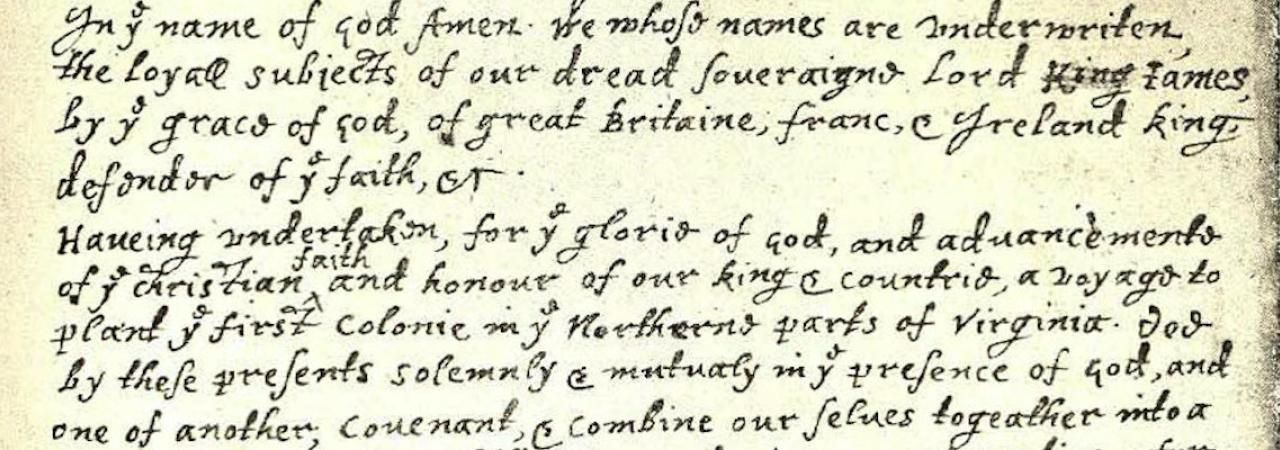 In yͤ name of god Amen. We whose names are underwriten,
the loyall subjects of our dread soveraigne Lord King James,
by yͤ grace of god, of great Britaine, franc, & Ireland king,
defender of yͤ faith, &c.
Haveing undertaken, for yͤ glorie of god, and advancemente
of yͤ christian ^faith and honour of our king & countrie, a voyage to
plant yͤ first colonie in yͤ Northerne parts of Virginia. doe
by these presents solemnly & mutualy in yͤ presence of god, and
one of another, covenant, & combine our selves togeather into a